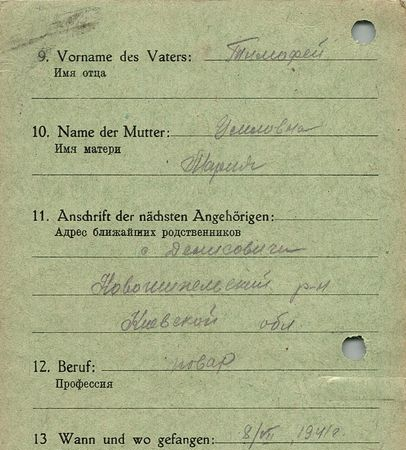 9. Vorname des Vaters: Тимофей
Имя отца
10. Name der Mutter:
Имя матери
Мария
11. Anschrift der nächsten Angehörigen:
Адрес ближайших родственников
с Денисовичи
Новошипельский р-н
Киевской обл
12. Beruf: повар
Профессия
13 Wann und wo gefangen: 8/VII 1941г.